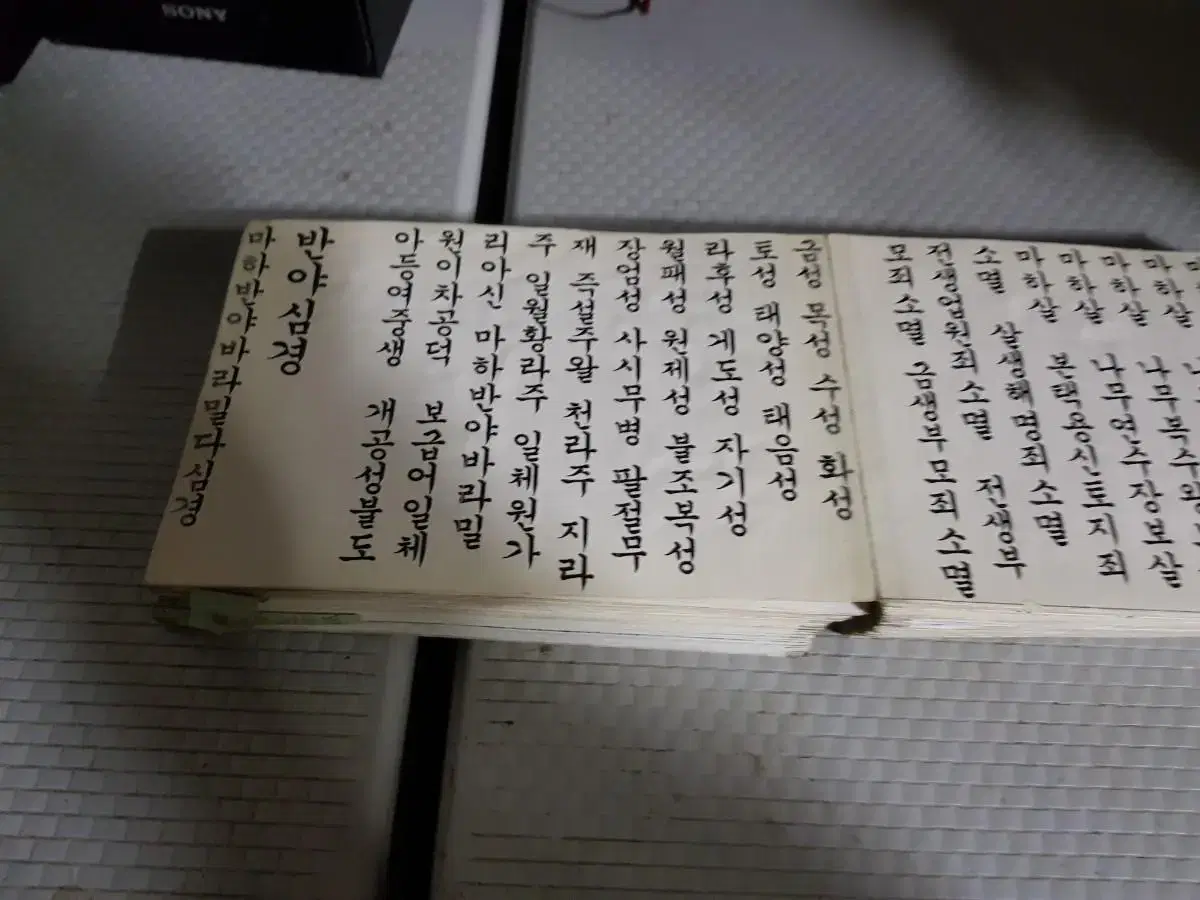 SONY
마하살
마하살
마하살 나무연수장보살
마하살 본택용신토지죄
소멸 살생해명죄소멸
전생업원죄소멸 전생부
모죄소멸 금생부모죄소멸
금성 목성 수성 화성
토성 태양성 태음성
라후성 게도성 자기성
월패성 원제성 불조복성
장엄성 사시무병 팔절무
재 즉설주왈 천라주 지라
주 일월황라주 일체원가
리아신 마하반야바라밀
원이차공덕 보급어일체
아등여중생 개공성불도
반야심경
마하반야바라밀다심경